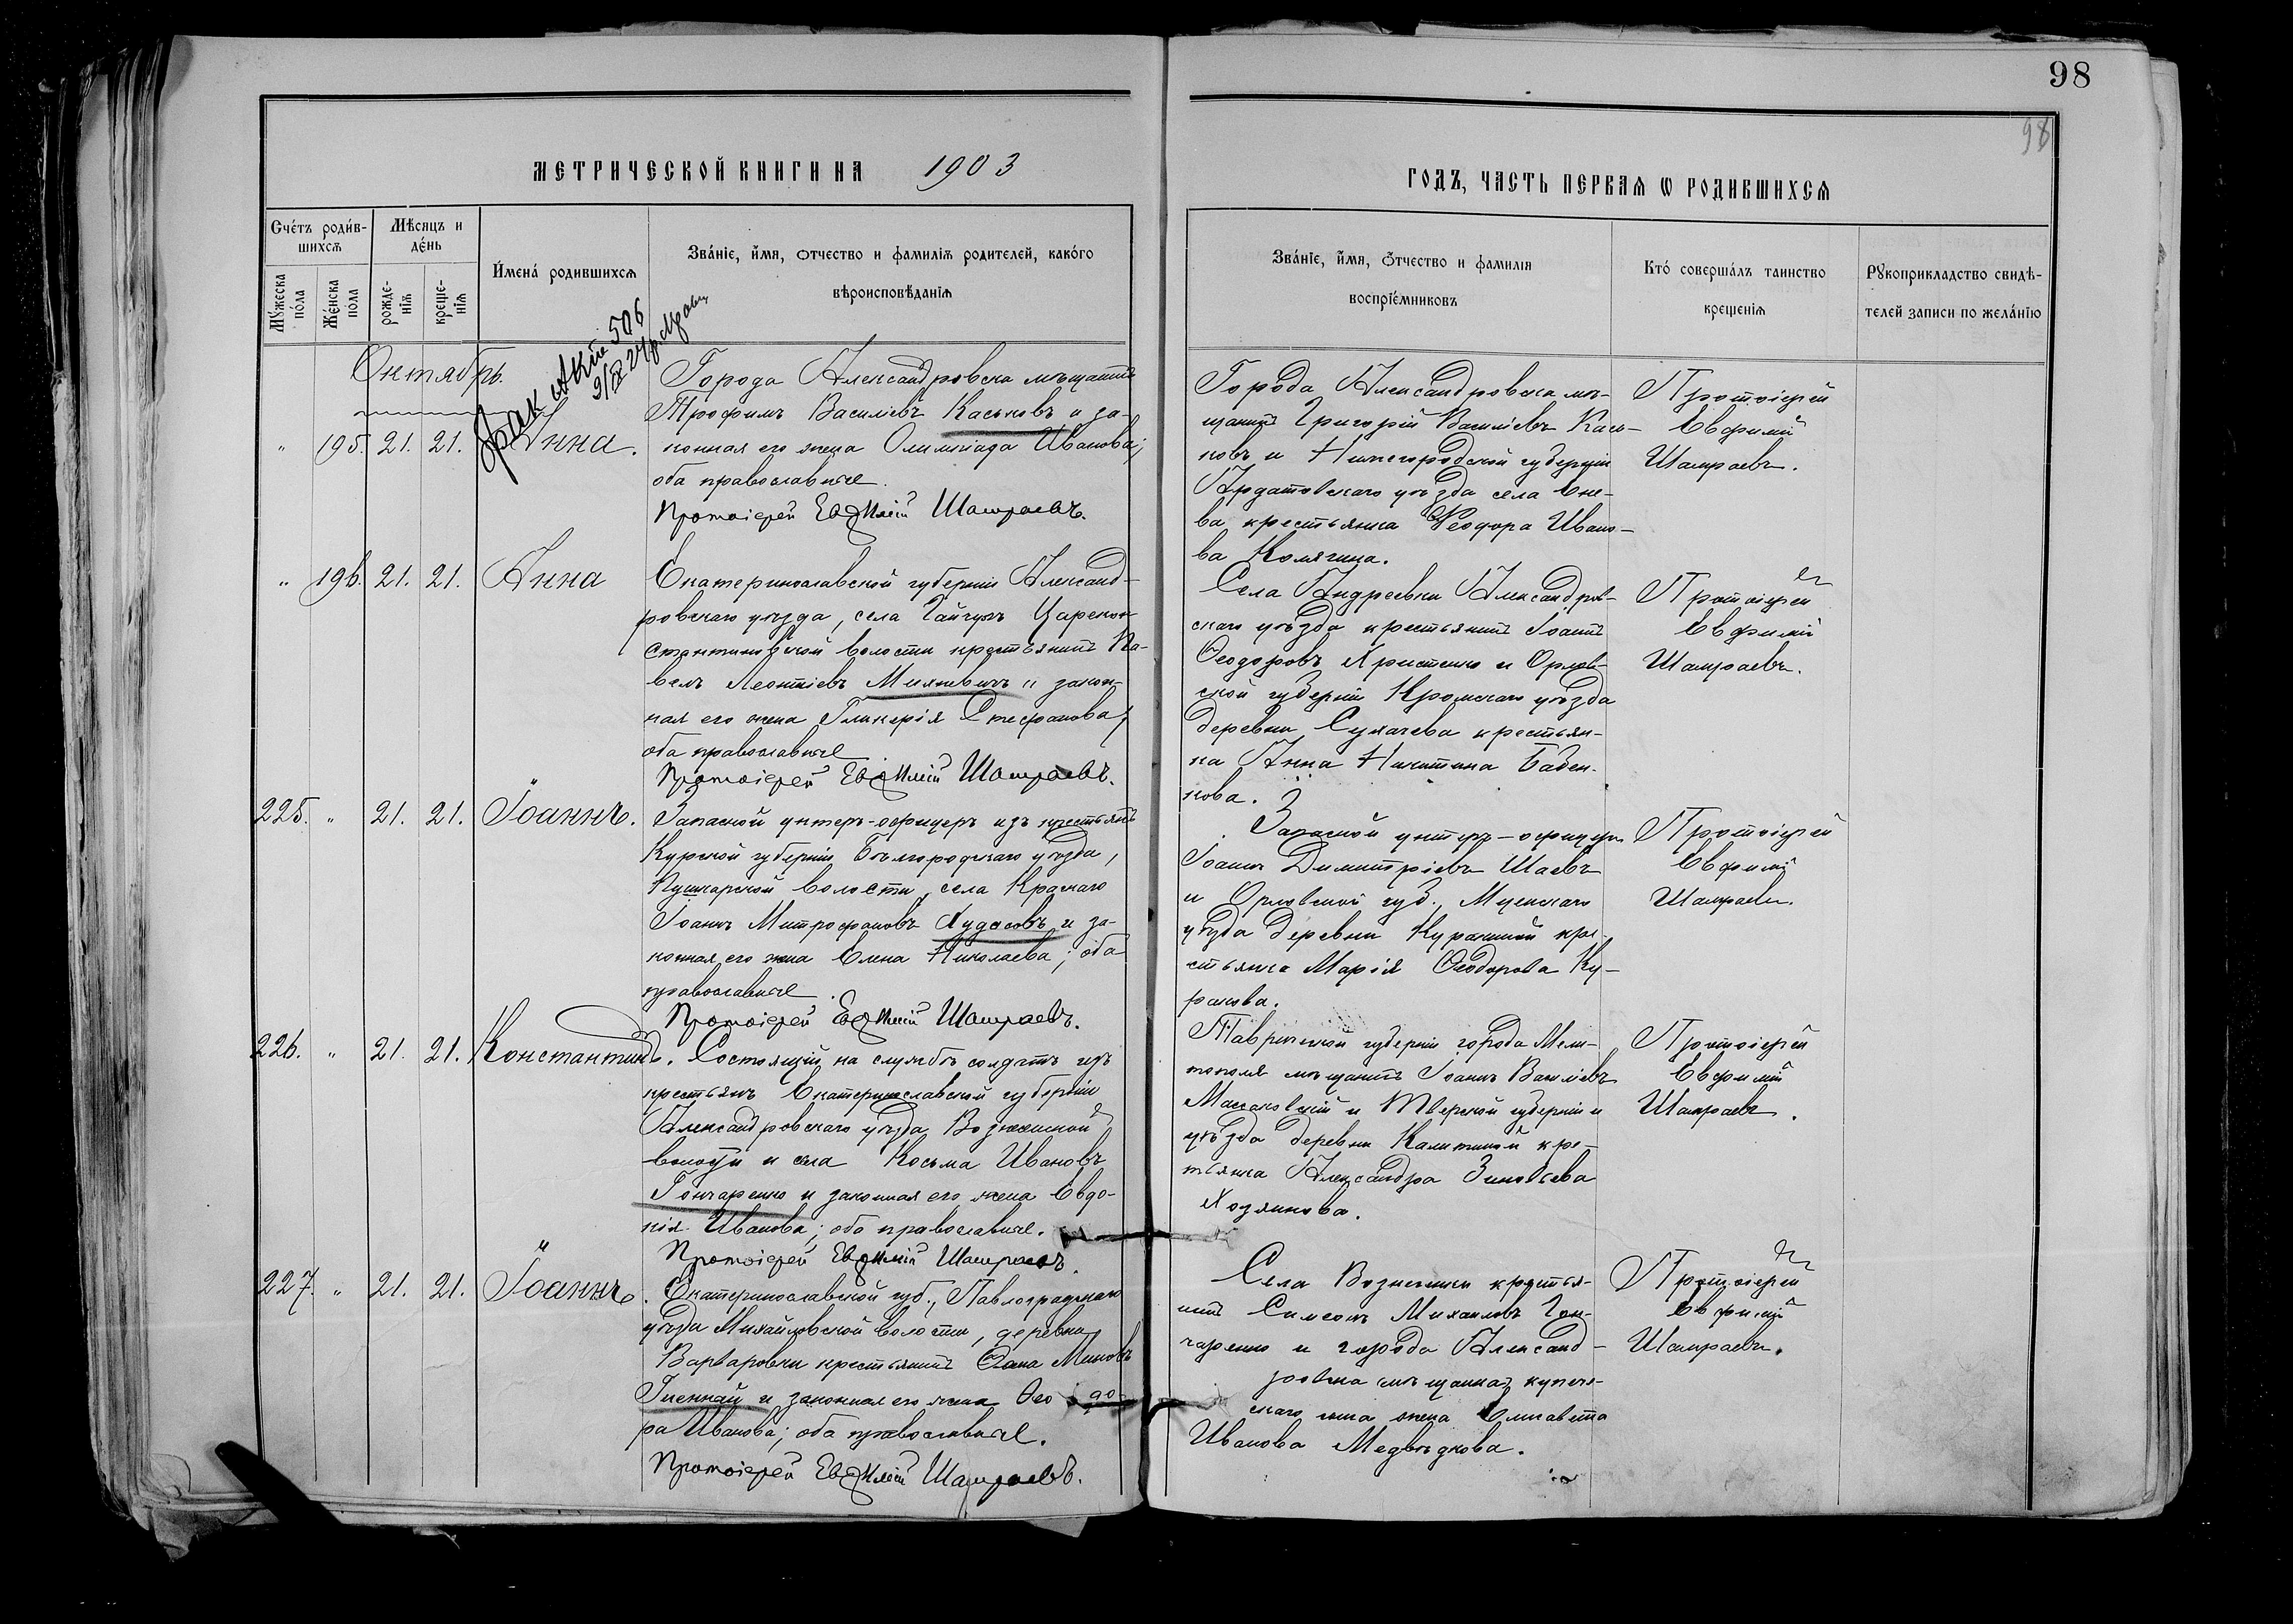 98
98
МЕТРИЧЕСКОЙ КНИГИ НА 1903
ГОДЪ, ЧАСТЬ ПЕРВАЯ Ѡ РОДИВШИХСЯ
Счетъ родившихся
Мѣсяцъ и день
Имена родившихся
Званіе, имя, отчество и фамилія родителей, какого
вѣроисповѣданія
Мужеска пола
Женска пола
рожденія
крещенія
Званіе, имя, отчество и фамилія
воспріемниковъ
Кто совершалъ таинство
крещенія
Рукоприкладство свидѣ-
телей записи по желанію
Октябрь.
Брак Акт 506
9/IX 24 р.
" 195. 21. 21. Анна.
Города Александровска мѣщанинъ
Трофимъ Василіевъ Каськовъ и за-
конная его жена Олимпіада Иванова;
оба православные.
Протоіерей Евѳимій Шамраевъ.
Города Александровска мѣ-
щанинъ Григорій Василіевъ Кась-
ковъ и Нижегородской губерніи
Ардатовскаго уѣзда села
крестьянка Ивано-
ва Колягина.
Протоіерей
Евфимій
Шамраевъ.
" 196. 21. 21. Анна
Екатеринославской губерніи Александ-
ровскаго уѣзда, села Гайчулъ Царекон-
стантиновской волости крестьянинъ Па-
велъ Леонтіевъ Михневичъ и закон-
ная его жена Гликерія Стефанова;
оба православные
Протоіерей Евѳимій Шамраевъ.
Села Андреевки Александров-
скаго уѣзда крестьянинъ Іоаннъ
Ѳеодоровъ Христенко и Орлов-
ской губерніи Кромскаго уѣзда
деревни Сухачева крестьян-
ка Анна Никитина Бабен-
кова.
Протоіерей
Евфимій
Шамраевъ.
225. " 21. 21. Іоаннъ.
Запасной унтеръ-офицеръ изъ крестьянъ
Курской губерніи Бѣлгородскаго уѣзда,
Пушкарской волости, села Краснаго
Іоаннъ Митрофановъ Худасовъ и за-
конная его жена Елена Николаева; оба
православные.
Протоіерей Евѳимій Шамраевъ.
Запасной унтеръ-офицеръ
Іоаннъ Димитріевъ Шаевъ
и Орловской губ., Мценскаго
уѣзда деревни кре-
стьянка Марія Ѳеодорова Ку-
ракова.
Протоіерей
Евфимій
Шамраевъ.
226. " 21. 21. Константинъ.
Состоящій на службѣ солдатъ изъ
крестьянъ Екатеринославской губерніи
Александровскаго уѣзда Вознесенской
волости и села Косьма Ивановъ
Гончаренко и законная его жена Евдо-
кія Иванова; оба православные.
Протоіерей Евѳимій Шамраевъ.
Таврической губерніи города Мели-
тополя мѣщанинъ Іоаннъ Василіевъ
Массаковскій и Тверской губерніи и
уѣзда деревни Калитиной кре-
стьянка Александра Зиновьева
Хозяинова.
Протоіерей
Евфимій
Шамраевъ.
227. " 21. 21. Іоаннъ.
Екатеринославской губ., Павлоградскаго
уѣзда Михайловской волости, деревни
Варваровки крестьянинъ Ѳома Миновъ
Гненнай и законная его жена Ѳеодо-
ра Иванова; оба православные.
Протоіерей Евѳимій Шамраевъ.
Села Вознесенки крестья-
нинъ Симеонъ Михаиловъ Гон-
чаренко и города Александ-
ровска мѣщанка, купече-
скаго сына жена Елисавета
Иванова Медвѣдкова.
Протоіерей
Евфимій
Шамраевъ.